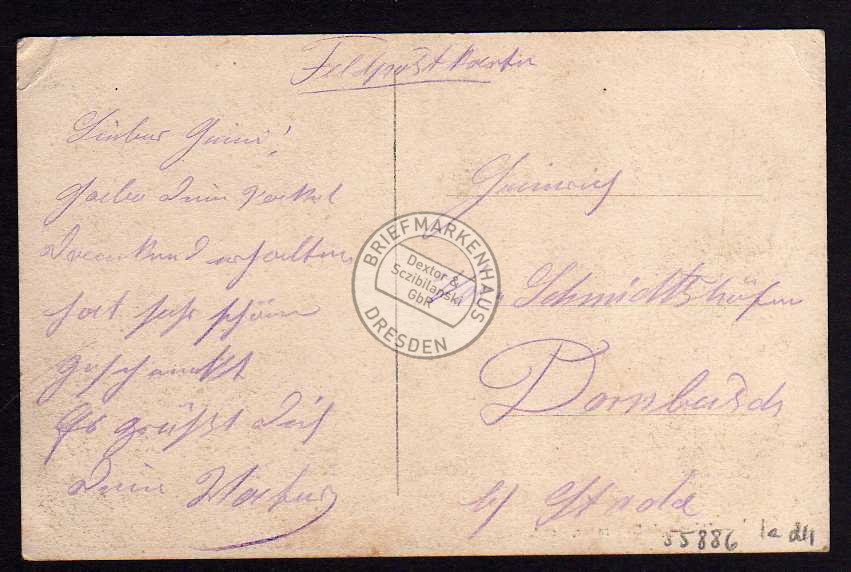 Feldpostkarte
Lieber Heini!
Habe Dein Packet
dankend erhalten
hat sehr schön
geschmekt
Es grüßt Dich
Dein Vater
Heinrich
Schmidt
Dornbusch
b/ Stade
BRIEFMARKENHAUS
Dextor &
Sczibilanski
GbR
DRESDEN
55886 1a d4